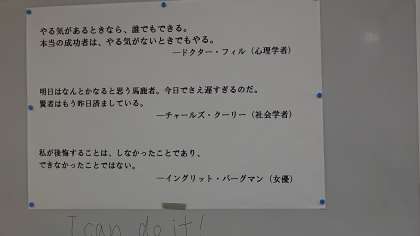 やる気があるときなら、誰でもできる。
本当の成功者は、やる気がないときでもやる。
―ドクター・フィル（心理学者）
明日はなんとかなると思う馬鹿者。今日でさえ遅すぎるのだ。
賢者はもう昨日済ましている。
―チャールズ・クーリー（社会学者）
私が後悔することは、しなかったことであり、
できなかったことではない。
―イングリット・バーグマン（女優）
I can do it!